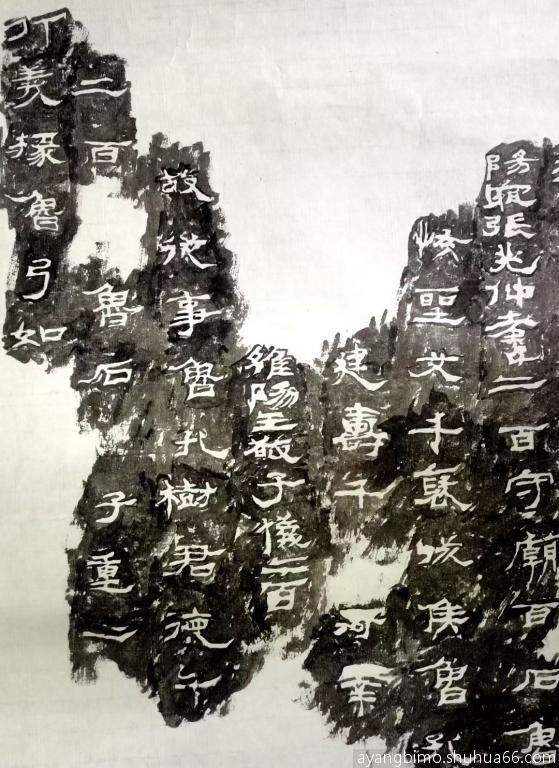 陽張兆仲孝二百守廟百石魯
恢聖文千褒成侯魯孔
建壽千 河南
雒陽王敬子慎二百
故從事魯孔樹君德千
二百 魯石子重二
行義掾魯弓如
ayangbimo.shuhua66.com